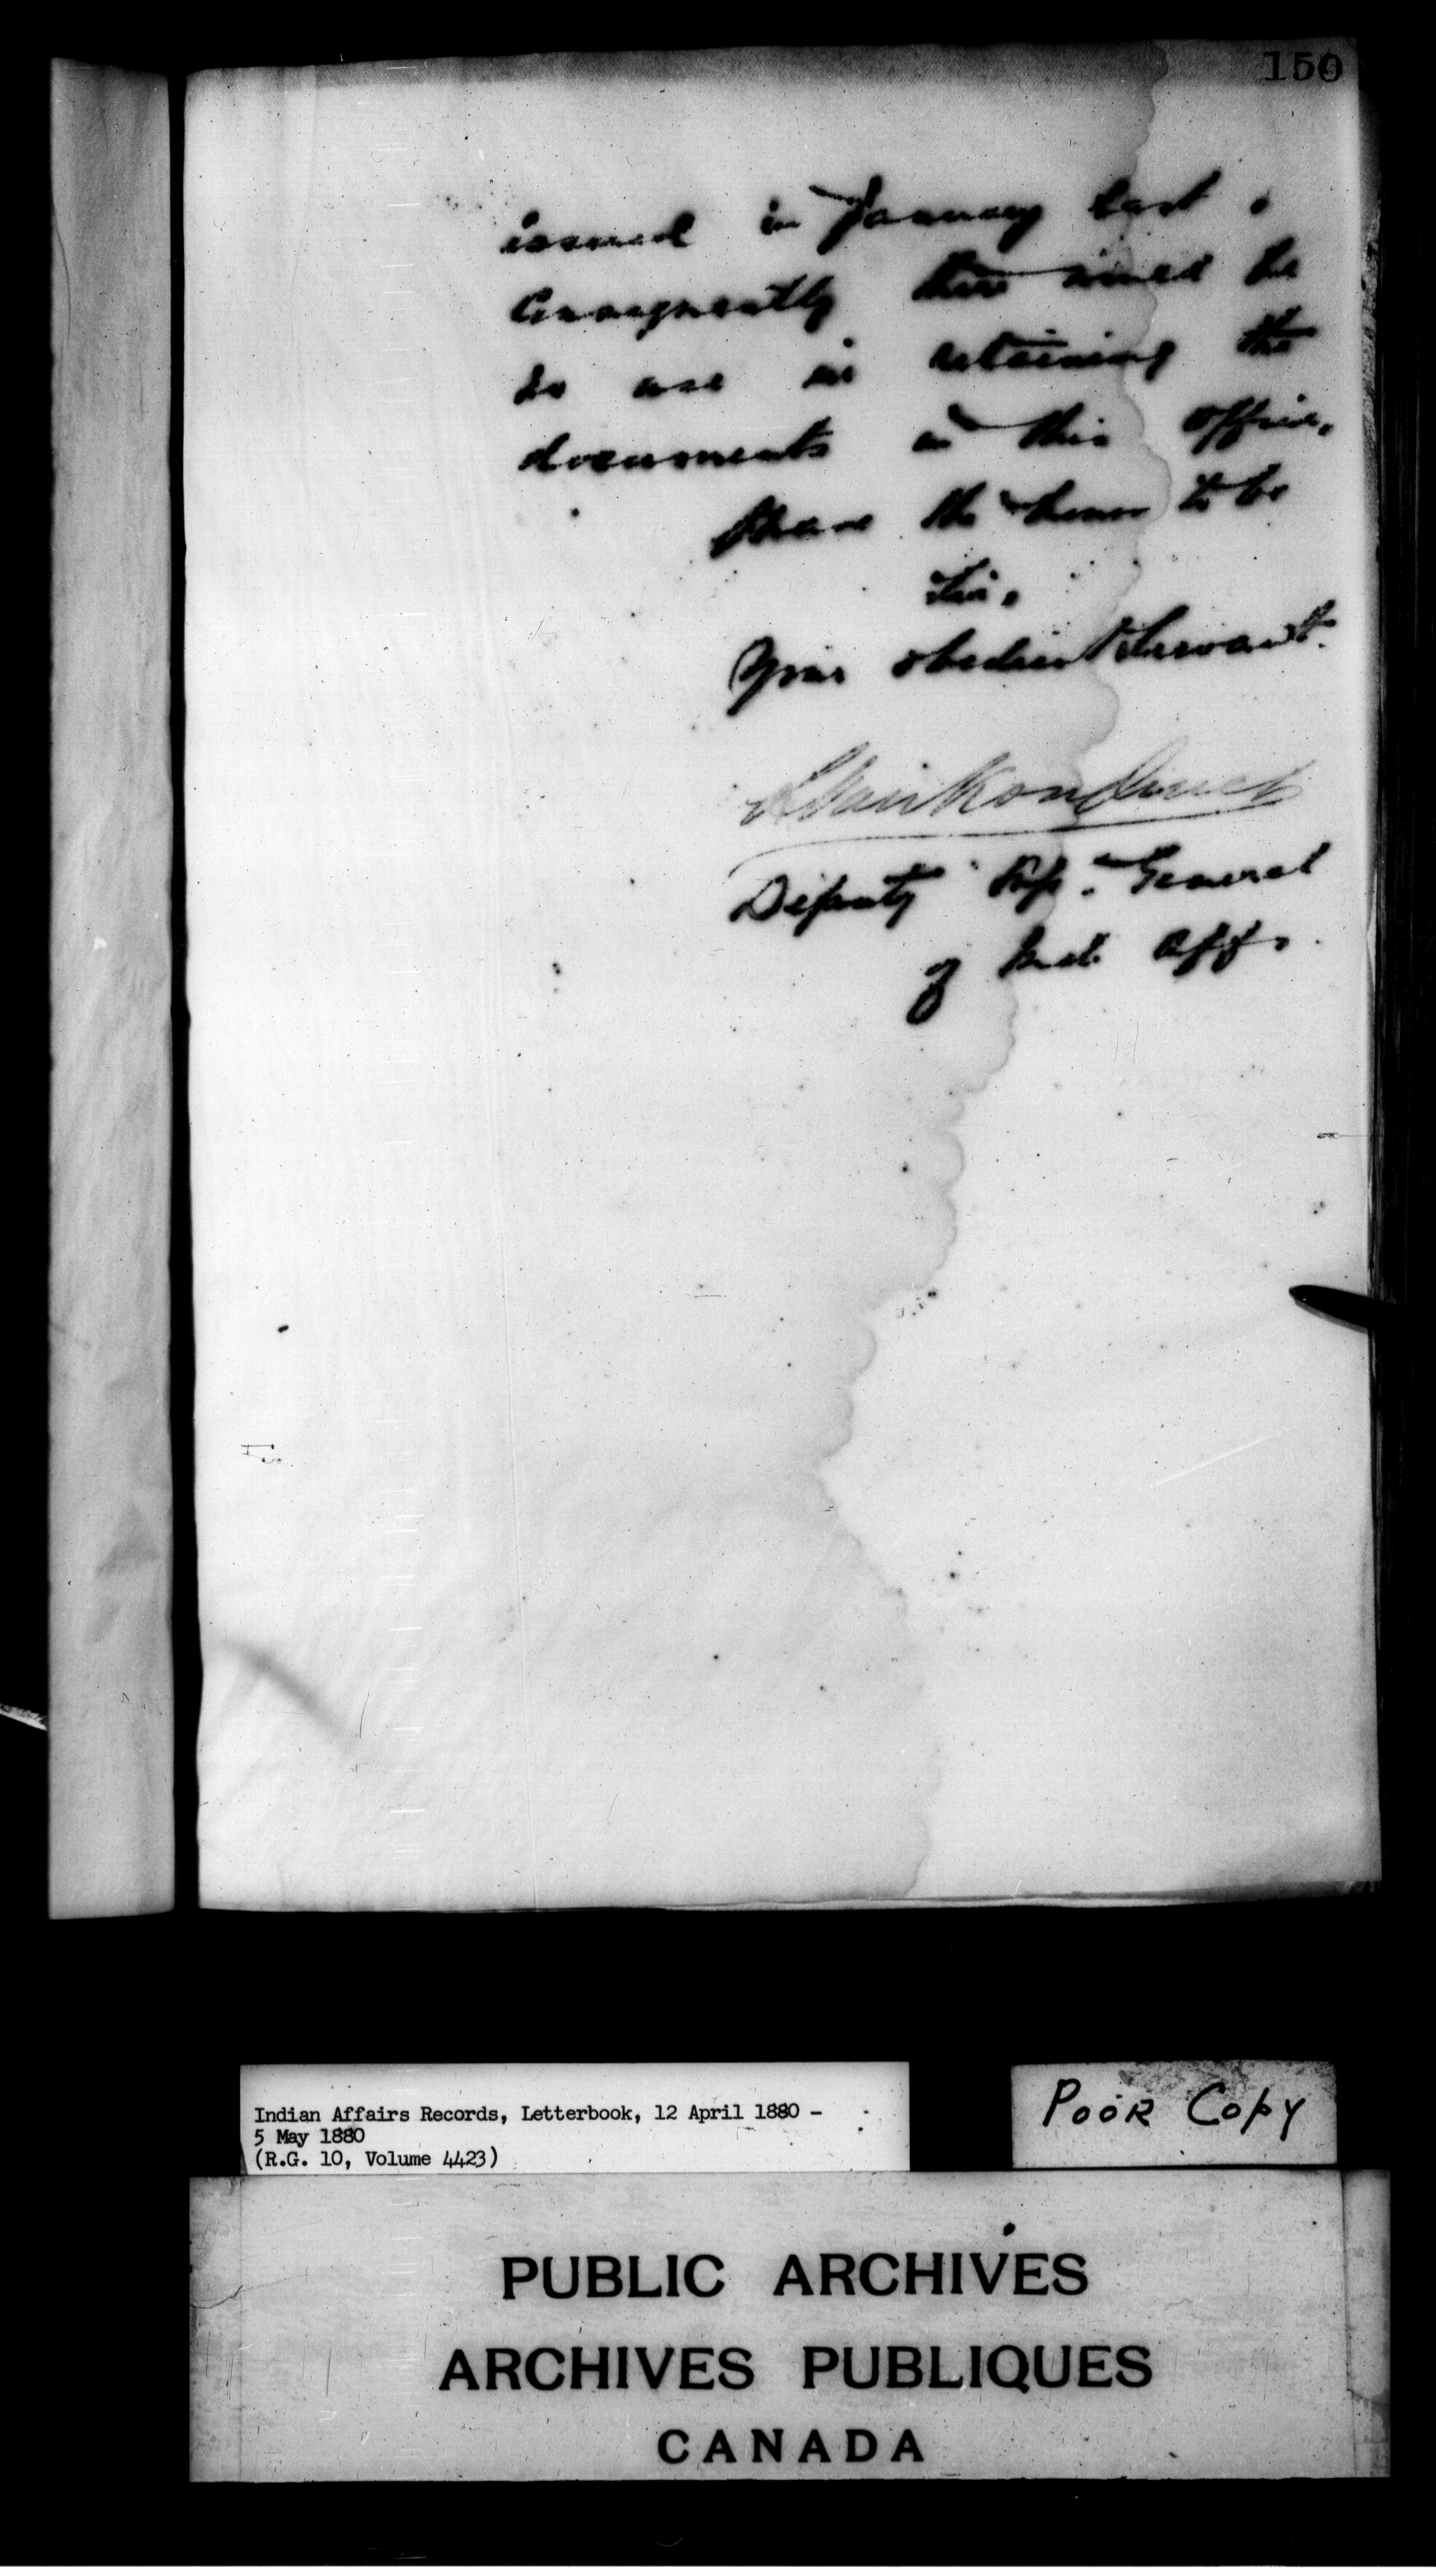 150
issued in January last.
Consequently there would be
no use in retaining the
documents in this office.
I have the honor to be
Sir,
Your obedient Servant.
L. Vankoughnet
Deputy Sup. General
of Ind. Affs.
Indian Affairs Records, Letterbook, 12 April 1880 -
5 May 1880
(R.G. 10, Volume 4423)
POOR COPY
PUBLIC ARCHIVES
ARCHIVES PUBLIQUES
CANADA